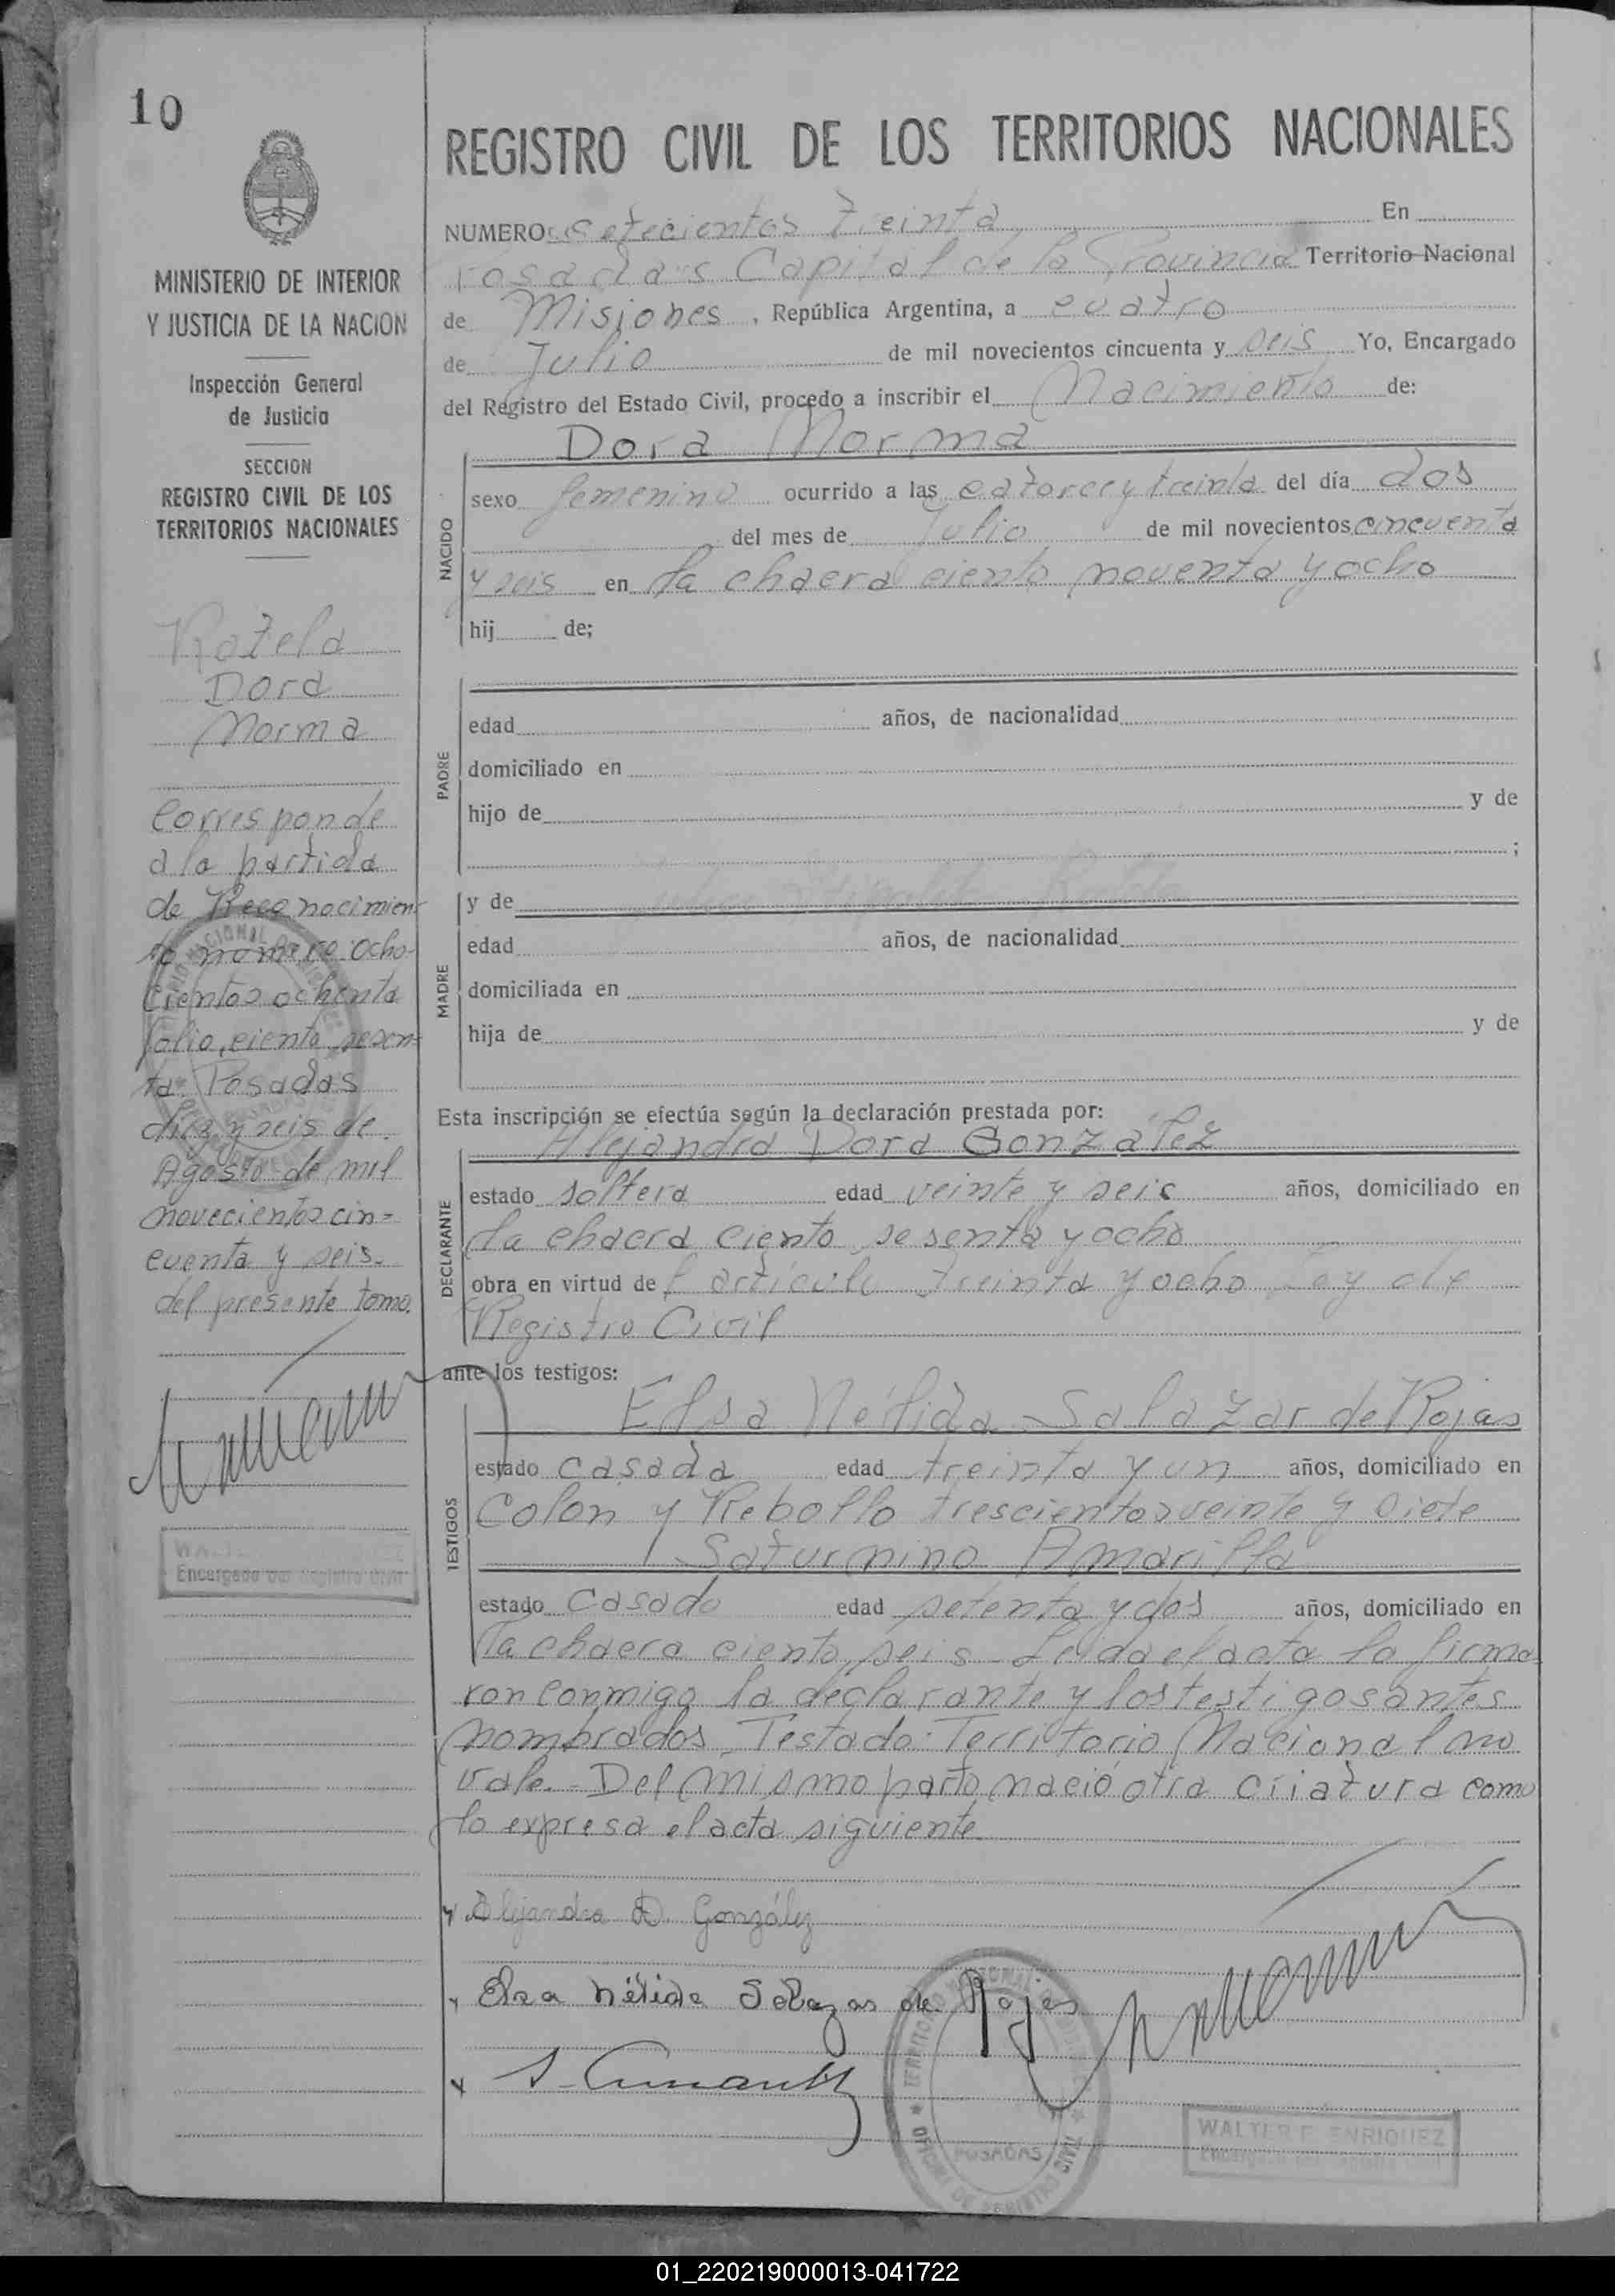 10
MINISTERIO DE INTERIOR
Y JUSTICIA DE LA NACION
Inspección General
de Justicia
SECCION
REGISTRO CIVIL DE LOS
TERRITORIOS NACIONALES
Rotela
Dora
Norma
Corresponde
a la partida
de Reconocimien-
to número ocho-
cientos ochenta
folio, ciento sesen-
ta. Posadas
diez y seis de
Agosto de mil
novecientos cin-
cuenta y seis.
del presente tomo.
Encargado del Registro Civil
REGISTRO CIVIL DE LOS TERRITORIOS NACIONALES
NUMERO setecientos treinta En
Posadas Capital de la Provincia Territorio Nacional
de Misiones, República Argentina, a cuatro
de Julio de mil novecientos cincuenta y seis Yo, Encargado
del Registro del Estado Civil, procedo a inscribir el Nacimiento de:
Dora Norma
NACIDO
sexo femenino ocurrido a las catorce y treinta del día dos
del mes de Julio de mil novecientos cincuenta
y seis en la chacra ciento noventa y ocho
hij de;
PADRE
edad años, de nacionalidad
domiciliado en
hijo de y de
;
MADRE
y de
edad años, de nacionalidad
domiciliada en
hija de y de
Esta inscripción se efectúa según la declaración prestada por:
Alejandra Dora González
DECLARANTE
estado soltera edad veinte y seis años, domiciliado en
la chacra ciento sesenta y ocho
obra en virtud del artículo treinta y ocho Ley de
Registro Civil
ante los testigos:
Elsa Nélida Salazar de Rojas
TESTIGOS
estado casada edad treinta y un años, domiciliado en
Colon y Rebollo trescientos veinte y siete
Saturnino Amarilla
estado casado edad setenta y dos años, domiciliado en
la chacra ciento seis - Leida el acta la firma-
ron conmigo la declarante y los testigos antes
nombrados. Testado: Territorio Nacional no
vale.- Del mismo parto nació otra criatura como
lo expresa el acta siguiente
Alejandra D. González
Elsa Nélida Salazar de Rojas
S. Amarilla
POSADAS
WALTER F. ENRIQUEZ
01_220219000013-041722